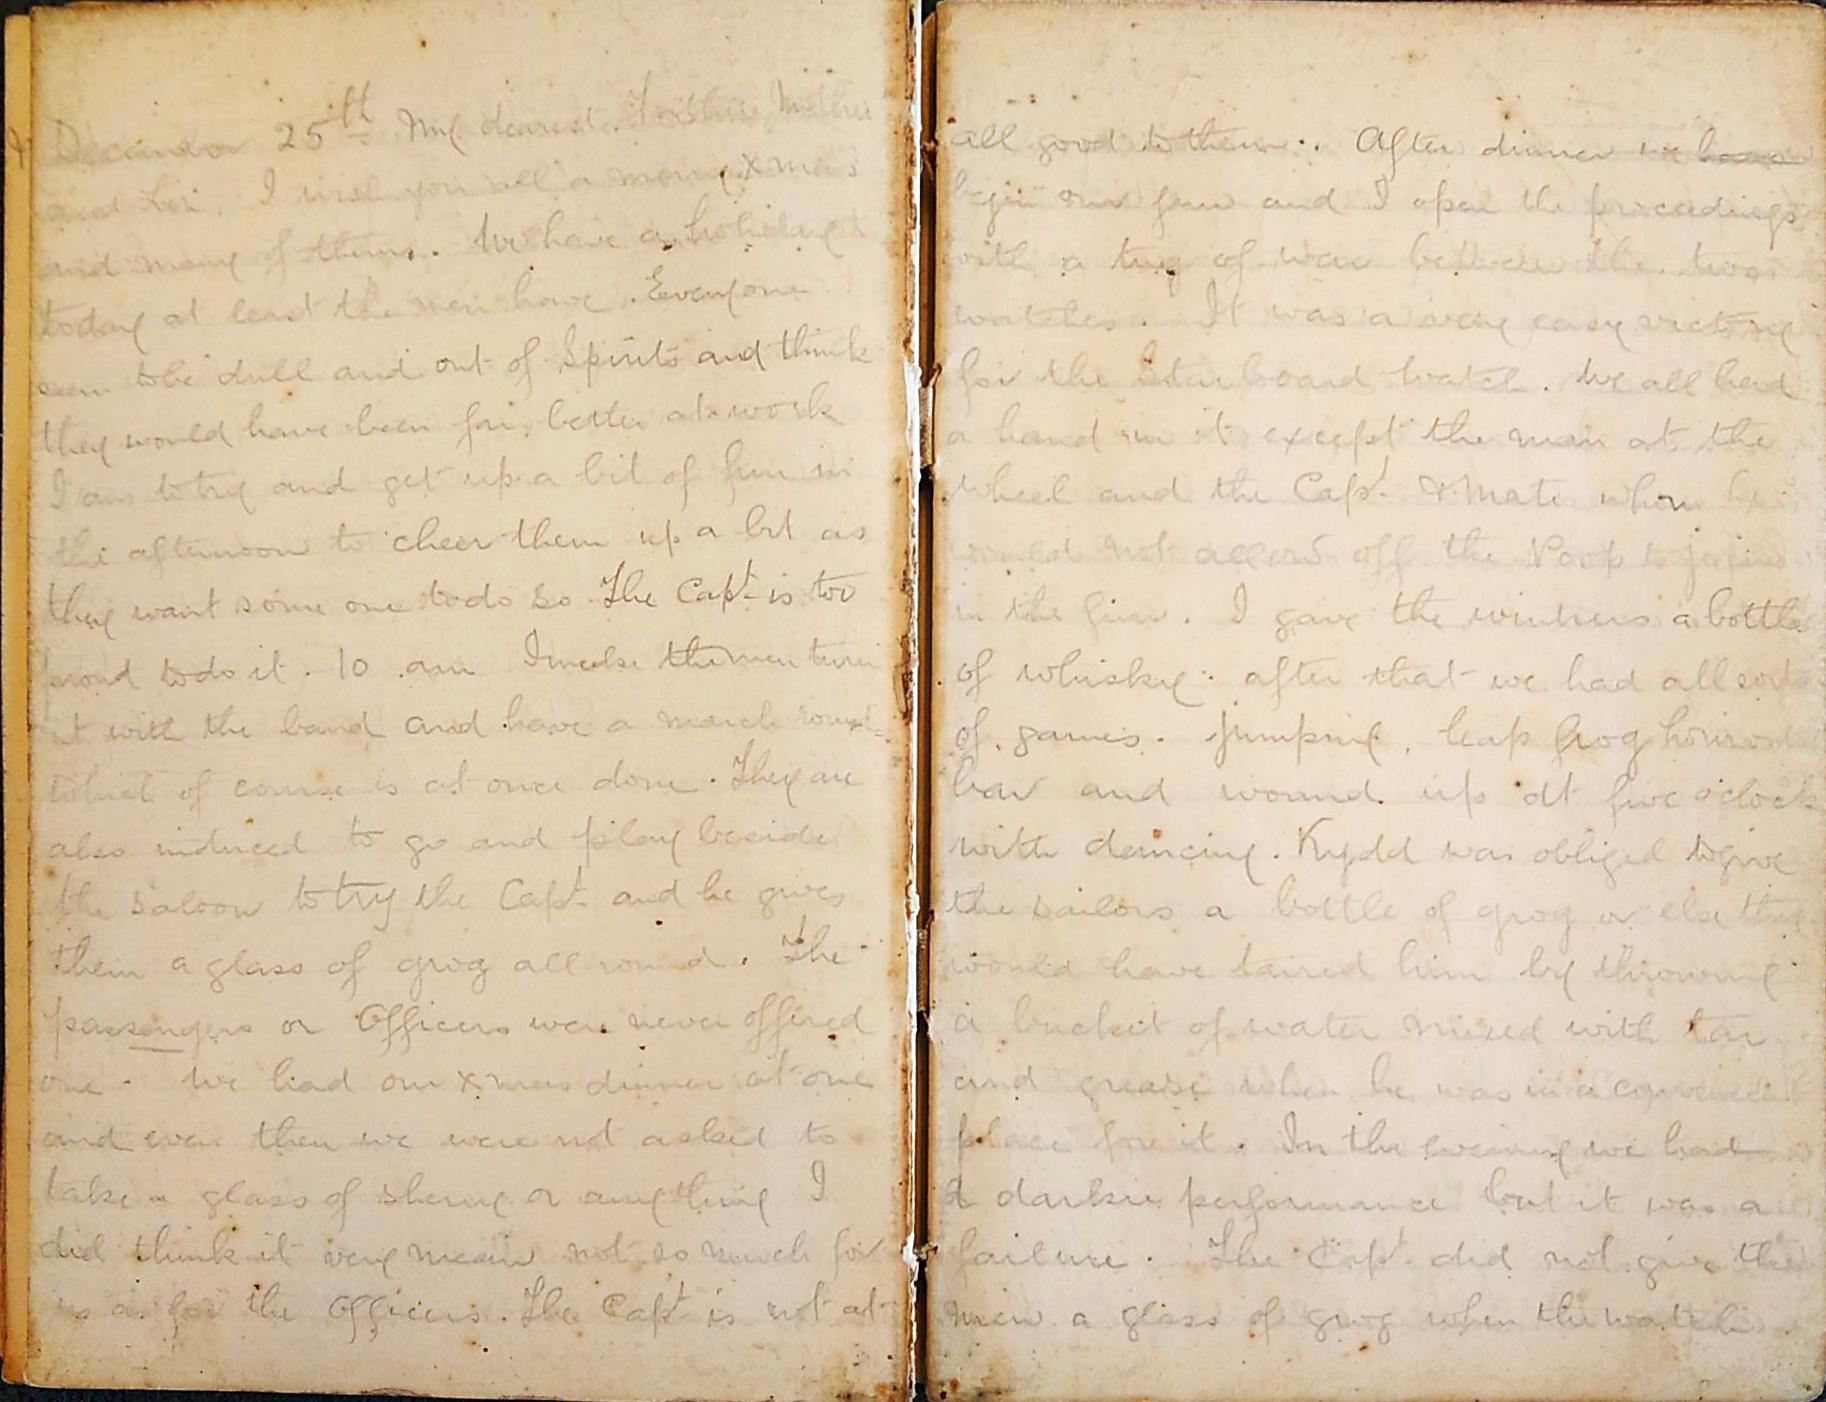 December 25th My dearest Mother
and I wish you all a merry Xmas
and many of them. We have a holiday
today at least the men have. Everyone
seem to be dull and out of Spirits and think
they would have been far better at work
I am to try and get up a bit of fun in
the afternoon to cheer them up a bit as
they want some one to do so. The Capt is too
proud to do it. 10 am I make the men turn
out with the band and have a march round
which of course is at once done. They are
also induced to go and play beside
the saloon to try the Capt and he gives
them a glass of grog all round. The
passengers or Officers were never offered
one. We had our Xmas dinner at one
and even then we were not asked to
take a glass of sherry or anything I
did think it very mean not so much for
us as for the Officers. The Capt is not at
all good to them. After dinner we
begin our fun and I open the proceedings
with a tug of war between the two
watches. It was a very easy victory
for the Starboard watch. We all had
a hand in it except the man at the
wheel and the Capt & Mate whom he
would not allow off the Poop to join
in the fun. I gave the winners a bottle
of whisky. after that we had all sorts
of games. jumping, leap frog horizontal
bar and wound up at five o'clock
with dancing. Kydd was obliged to give
the sailors a bottle of grog or else they
would have tarred him by throwing
a bucket of water mixed with tar
and grease when he was in a convenient
place for it. In the evening we had
a darkie performance but it was a
failure. The Capt did not give the
men a glass of grog when the watch